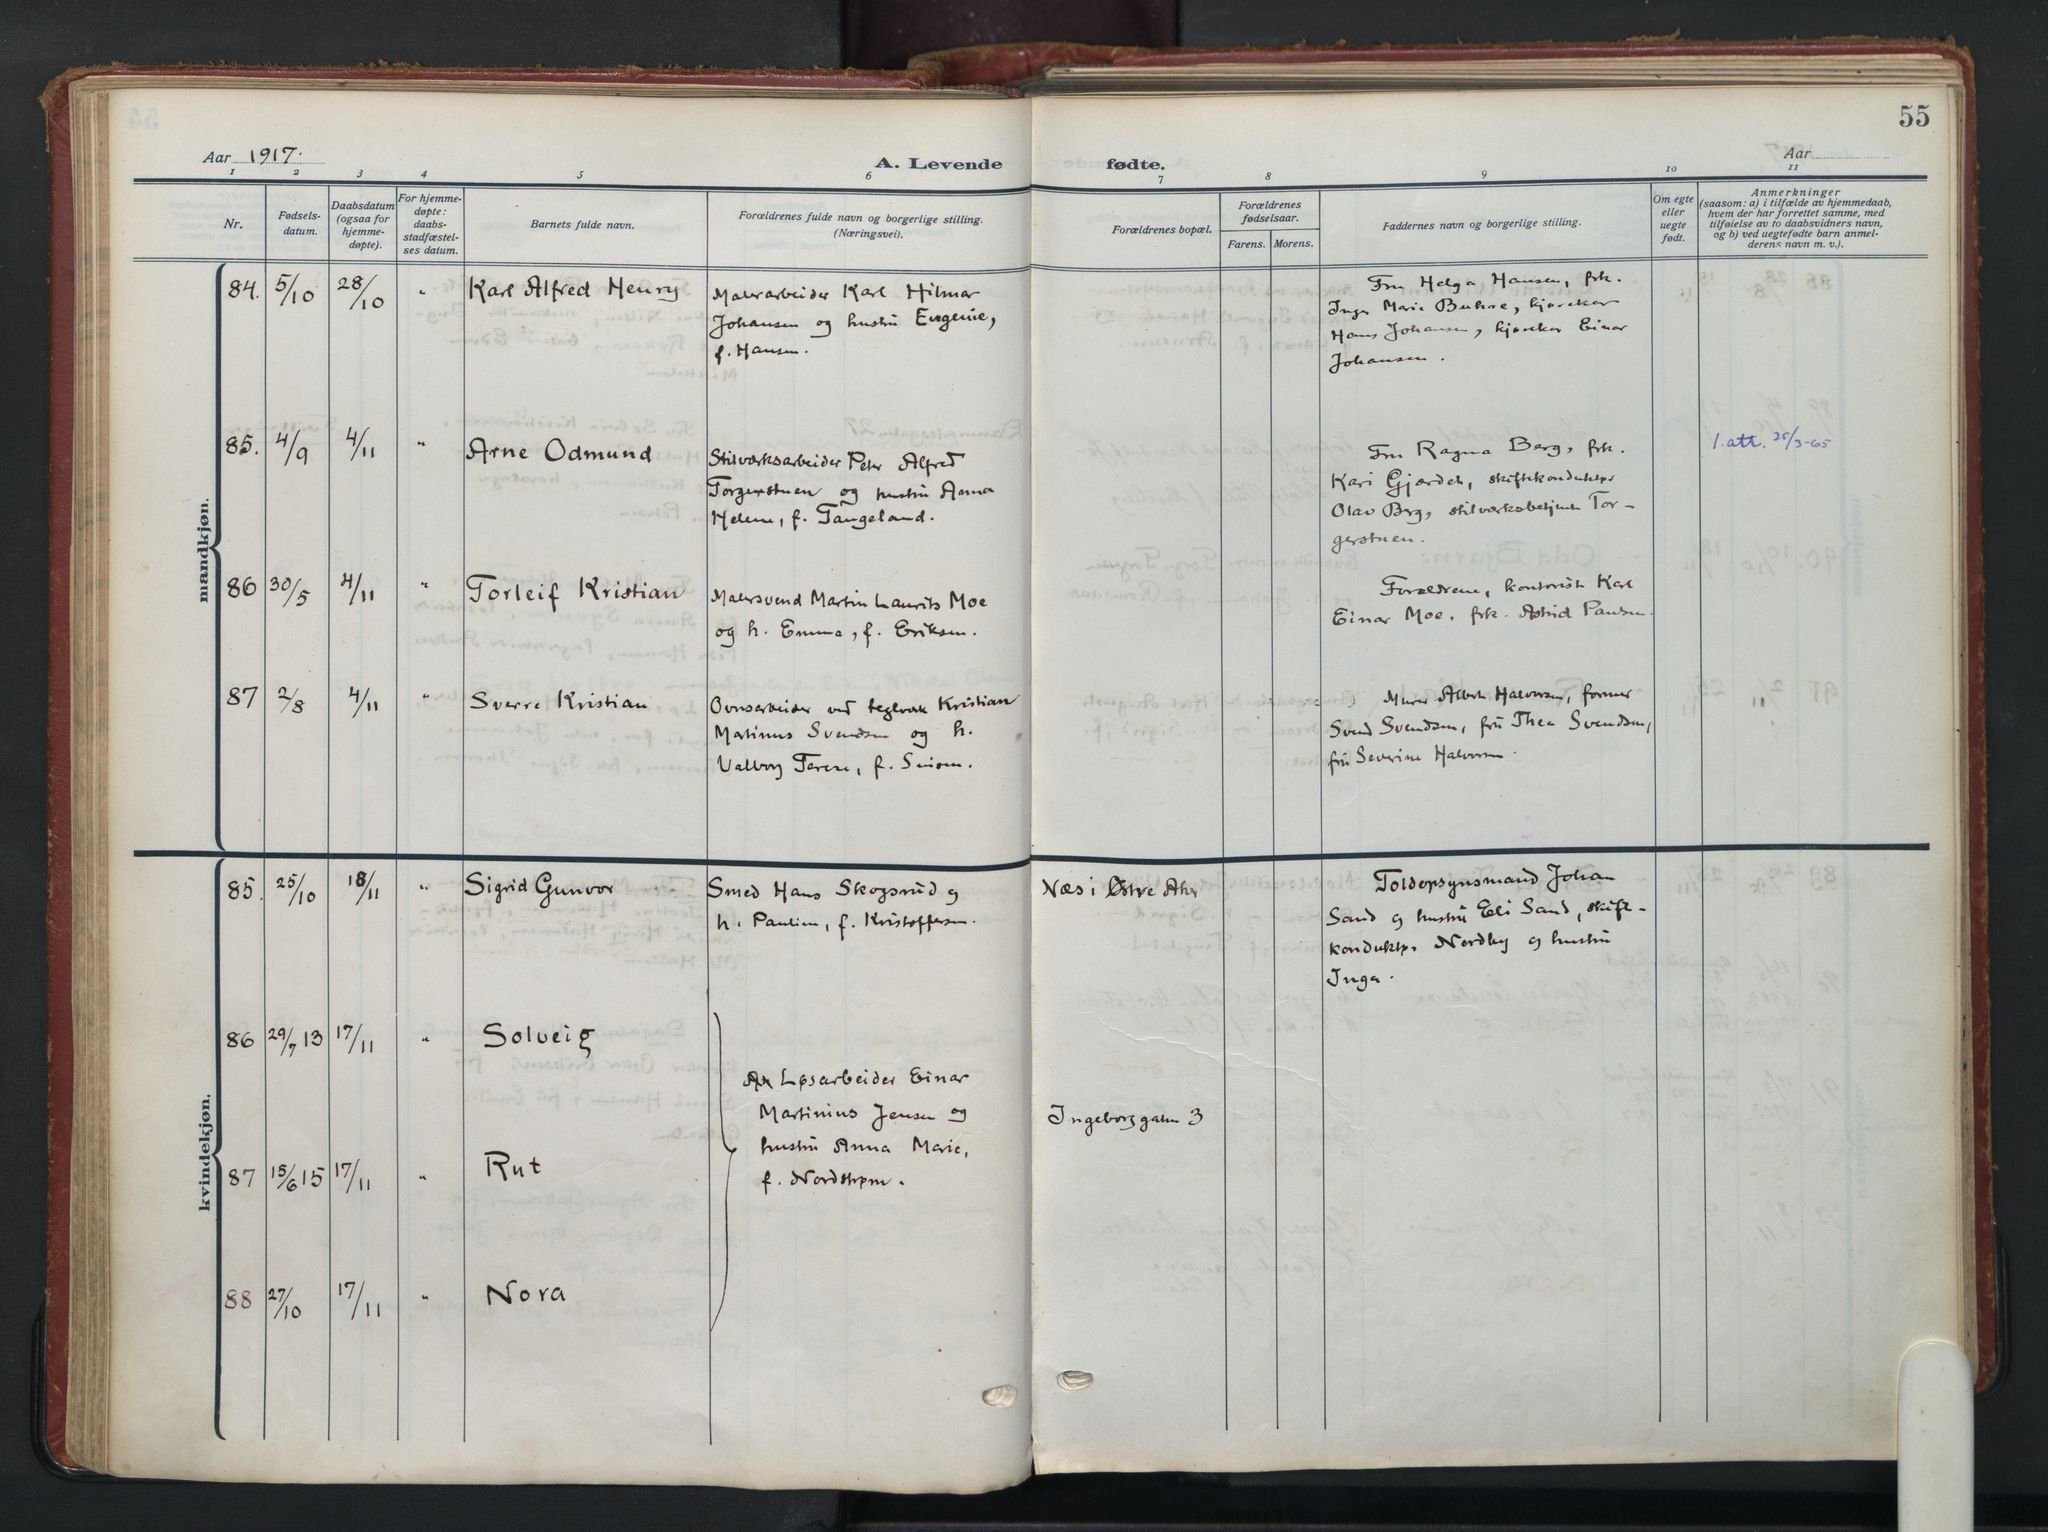 55
Aar 1917.
A. Levende fødte.
Aar
1 2 3 4 5 6 7 8 9 10 11
Nr.
Fødsels-
datum.
Daabsdatum
(ogsaa for
hjemme-
døpte).
For hjemme-
døpte:
daabs-
stadfæstel-
ses datum.
Barnets fulde navn.
Forældrenes fulde navn og borgerlige stilling.
(Næringsvei).
Forældrenes bopæl.
Forældrenes
fødselsaar.
Farens. Morens.
Faddernes navn og borgerlige stilling.
Om egte
eller
uegte
født.
Anmerkninger
(saasom: a) i tilfælde av hjemmedaab,
hvem der har forrettet samme, med
tilføielse av to daabsvidners navn,
og b) ved uegtefødte barn anmel-
derens navn m. v.).
mandkjøn.
84. 5/10 28/10 " Karl Alfred Henry
Malerarbeider Karl Hilmar
Johansen og hustru Eugenie,
f. Hansen.
Fru Helga Hansen, frk.
Inga Marie Buhre, kjørekar
Hans Johansen, kjørekar Einar
Johansen.
85. 4/9 4/11 " Arne Odmund
Stilverksarbeider Peter Alfred
Torgerstuen og hustru Anna
Helene, f. Tangeland.
Fru Ragna Berg, frk.
Kari Gjærdet, skiftekonduktør
Olav Berg, stilverksbetjent Tor-
gerstuen.
1. att. 25/3-65
86 30/5 4/11 " Torleif Kristian
Malersvend Martin Laurits Moe
og h. Emma, f. Eriksen.
Forældrene, kontorist Karl
Einar Moe, frk. Astrid Paulsen.
87 2/8 4/11 " Sverre Kristian
Ovnsarbeider ved teglverk Kristian
Martinus Svendsen og h.
Valborg Terese, f.
Murer Albert Halvorsen, former
Svend Svendsen, fru Thea Svendsen,
fru Severine Halvorsen.
kvindekjøn.
85. 25/10 18/11 " Sigrid Gunvor
Smed Hans Skogsrud og
h. Pauline, f. Kristoffersen.
Næs i Østre Aker
Toldopsynsmand Johan
Sand og hustru Eli Sand, skift-
konduktør Nordby og hustru
Inga.
86 29/7 13 17/11 " Solveig
Løsarbeider Einar
Martinius Jensen og
hustru Anna Marie,
f. Nordstrøm.
Ingeborggaten 3
87 15/6 15 17/11 " Rut
88 27/10 17/11 " Nora